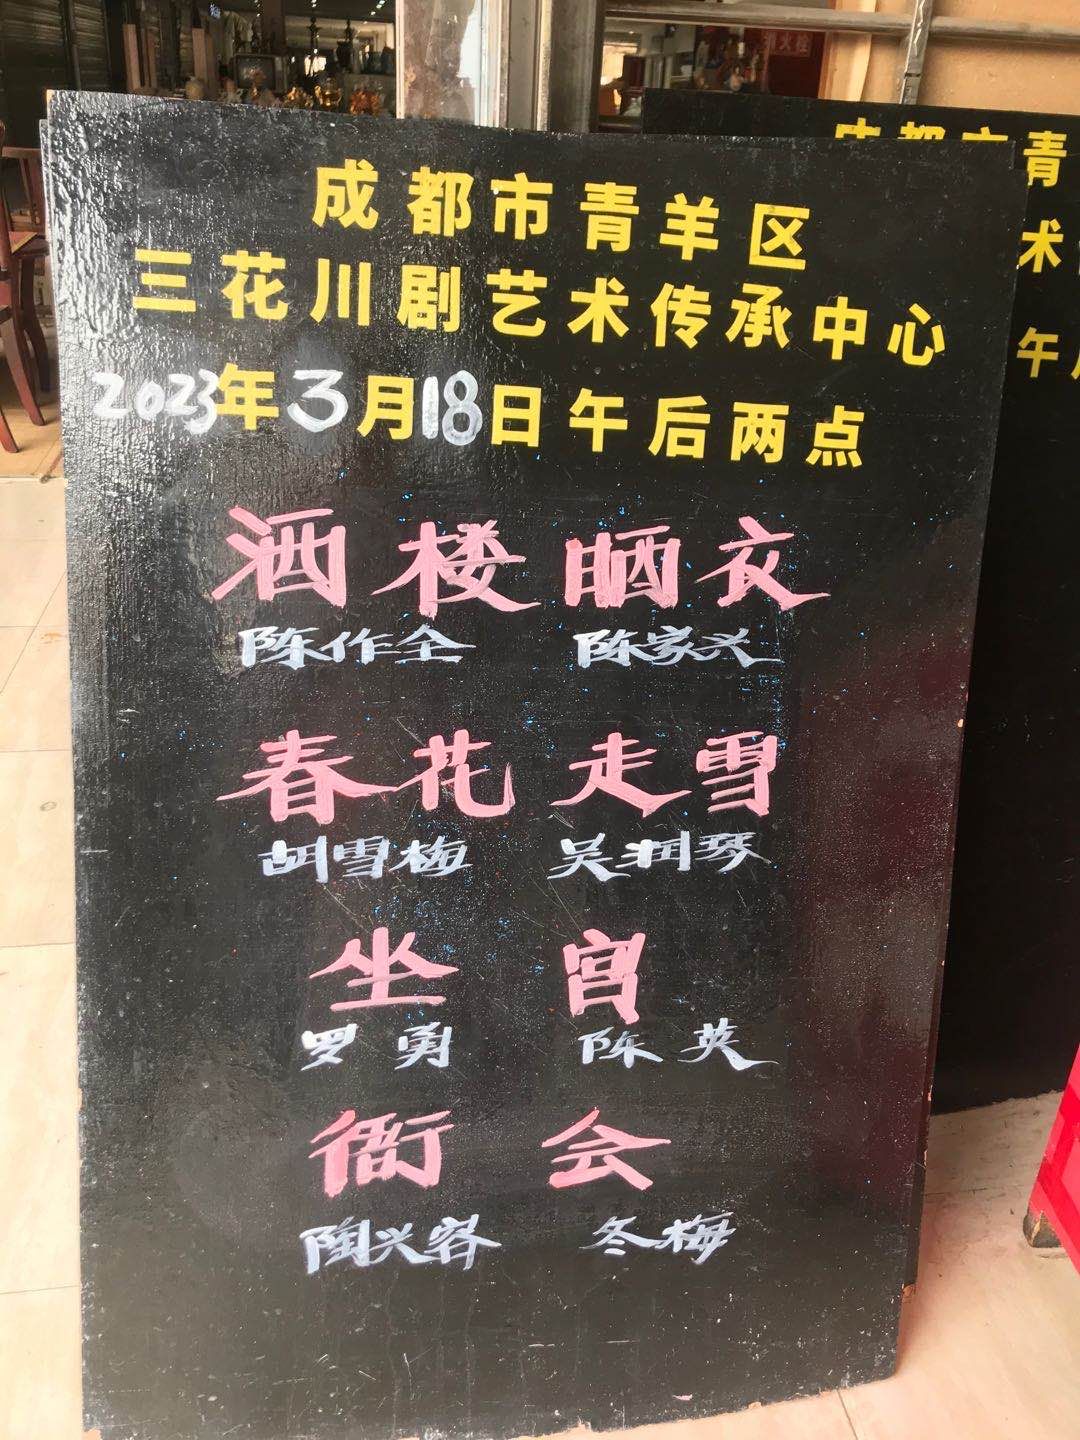 成都市青羊区
三花川剧艺术传承中心
2023年3月18日午后两点
酒楼晒衣
陈作全 陈家兴
春花走雪
胡雪梅 吴润琴
坐宫
罗勇 陈英
衙会
陶兴容 冬梅
青
术
午
火栓